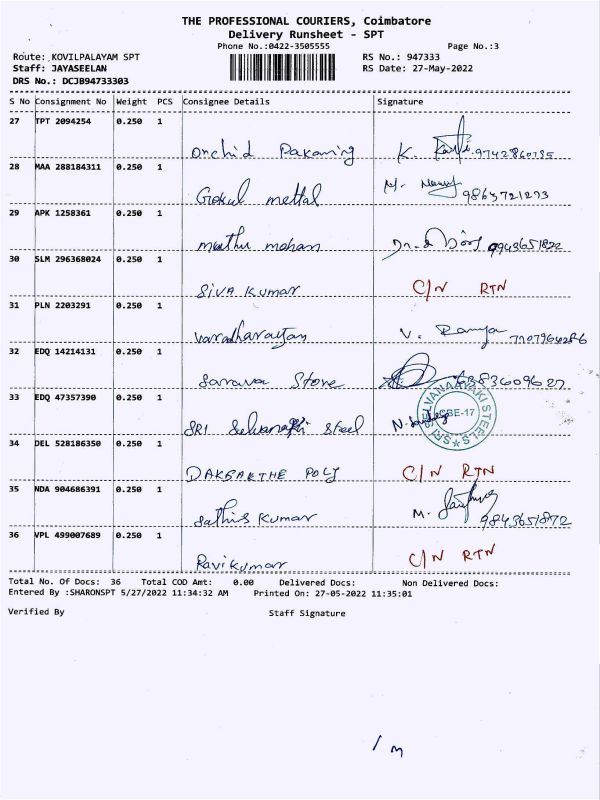 THE PROFESSIONAL COURIERS, Coimbatore
Delivery Runsheet - SPT
Phone No.:0422-3505555 Page No.:3
Route: KOVILPALAYAM SPT RS No.: 947333
Staff: JAYASEELAN RS Date: 27-May-2022
DRS No.: DCJB94733303
S No Consignment No Weight PCS Consignee Details Signature
27 TPT 2094254 0.250 1
Orchid K.
28 MAA 288184311 0.250 1
Gokul mettal M. 9863721293
29 APK 1258361 0.250 1
muthu mohan 9943651822
30 SLM 296368024 0.250 1
Siva Kumar C/N RTN
31 PLN 2203291 0.250 1
Varadharajan V. Ramya
32 EDQ 14214131 0.250 1
Store
33 EDQ 47357390 0.250 1
SRI Steel SRI SELVANAAYAKI STEELS CBE-17
34 DEL 528186350 0.250 1
POLY C/N RTN
35 NDA 904686391 0.250 1
Sathis Kumar M. 9843651872
36 VPL 499007689 0.250 1
Ravikumar C/N RTN
Total No. Of Docs: 36 Total COD Amt: 0.00 Delivered Docs: Non Delivered Docs:
Entered By :SHARONSPT 5/27/2022 11:34:32 AM Printed On: 27-05-2022 11:35:01
Verified By Staff Signature